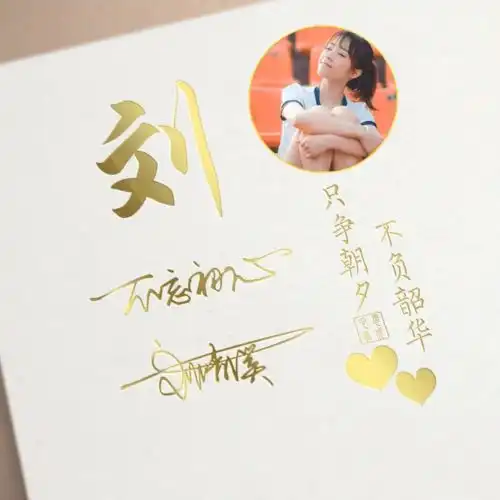 刘
不忘初心
只争朝夕
不负韶华